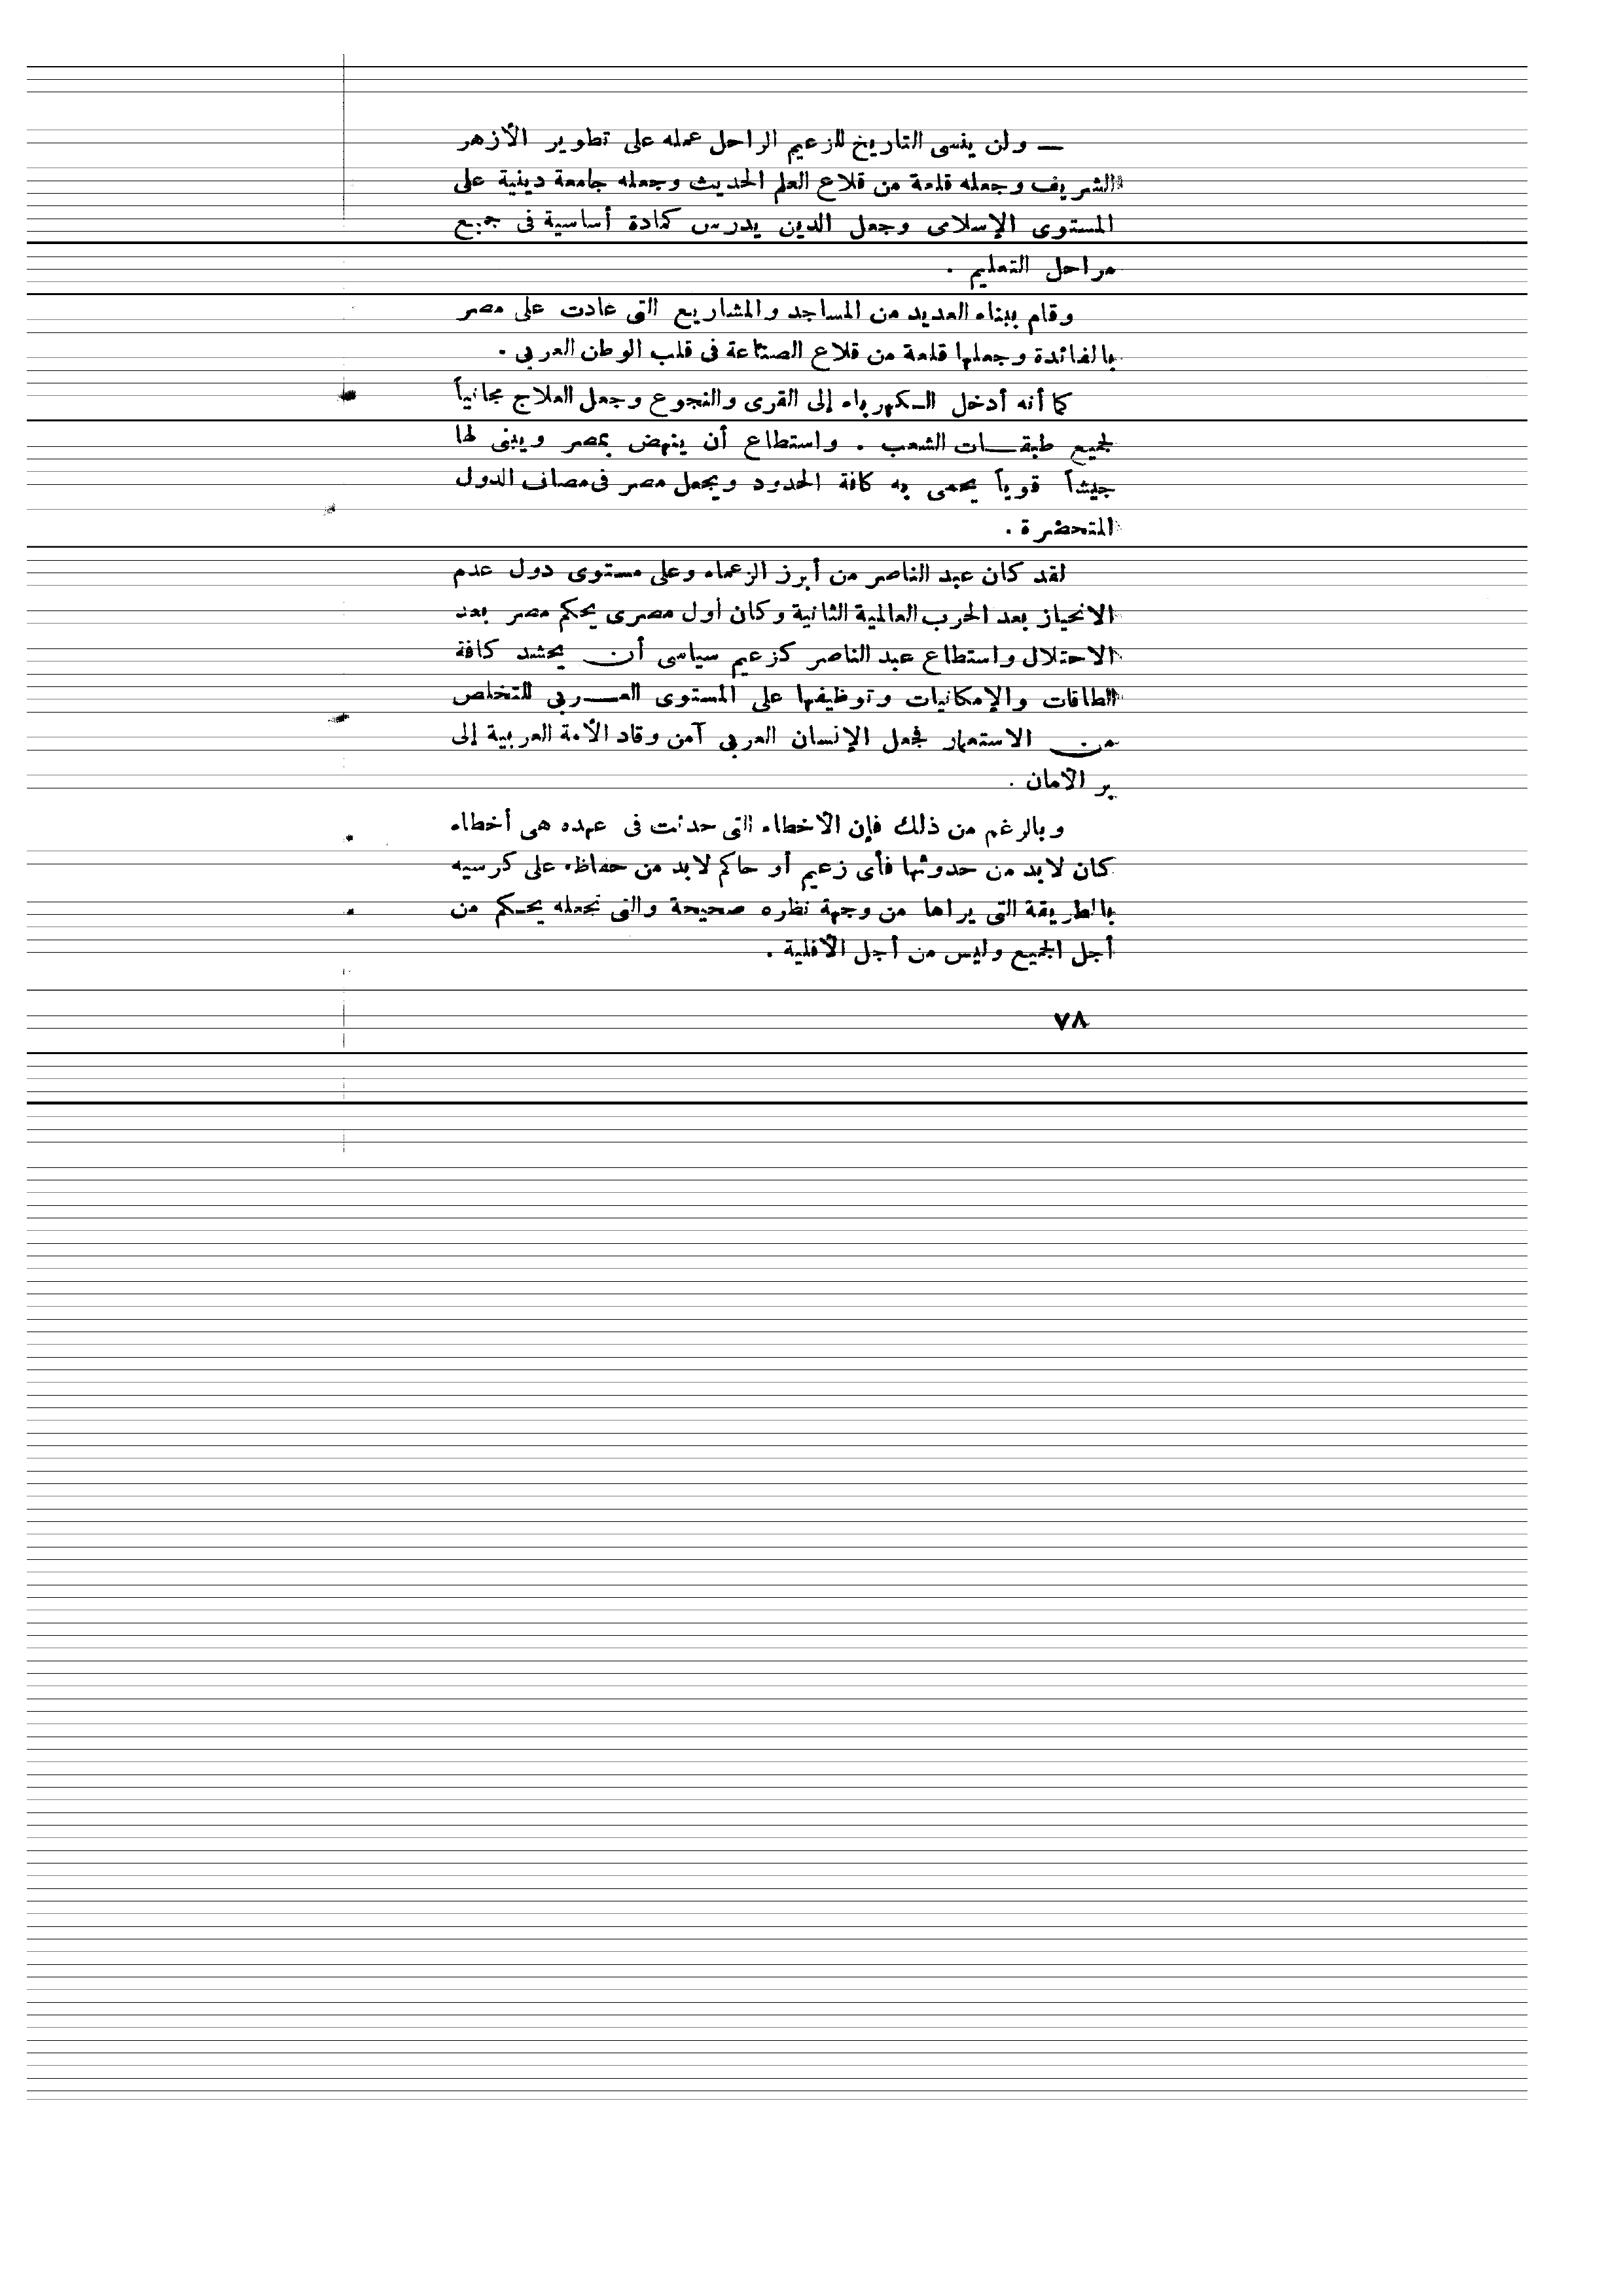 — ولن ينسى التاريخ للزعيم الراحل عمله على تطوير الأزهر
الشريف وجعله قلعة من قلاع العلم الحديث وجعله جامعة دينية على
المستوى الإسلامى وجعل الدين يدرس كمادة أساسية فى جميع
مراحل التعليم .
وقام ببناء العديد من المساجد والمشاريع التى عادت على مصر
بالفائدة وجعلها قلعة من قلاع الصناعة فى قلب الوطن العربى .
كما أنه أدخل الكهرباء إلى القرى والنجوع وجعل العلاج مجانياً
لجميع طبقات الشعب . واستطاع أن ينهض بمصر ويبنى لها
جيشاً قوياً يحمى به كافة الحدود ويجعل مصر فى مصاف الدول
المتحضرة .
لقد كان عبد الناصر من أبرز الزعماء وعلى مستوى دول عدم
الانحياز بعد الحرب العالمية الثانية وكان أول مصرى يحكم مصر بعد
الاحتلال واستطاع عبد الناصر كزعيم سياسى أن يحشد كافة
الطاقات والإمكانيات وتوظيفها على المستوى العربى للتخلص
من الاستعمار فجعل الإنسان العربى آمن وقاد الأمة العربية إلى
بر الأمان .
وبالرغم من ذلك فإن الأخطاء التى حدثت فى عهده هى أخطاء
كان لابد من حدوثها فأى زعيم أو حاكم لابد من حفاظه على كرسيه
بالطريقة التى يراها من وجهة نظره صحيحة والتى تجعله يحكم من
أجل الجميع وليس من أجل الأقلية .
٧٨